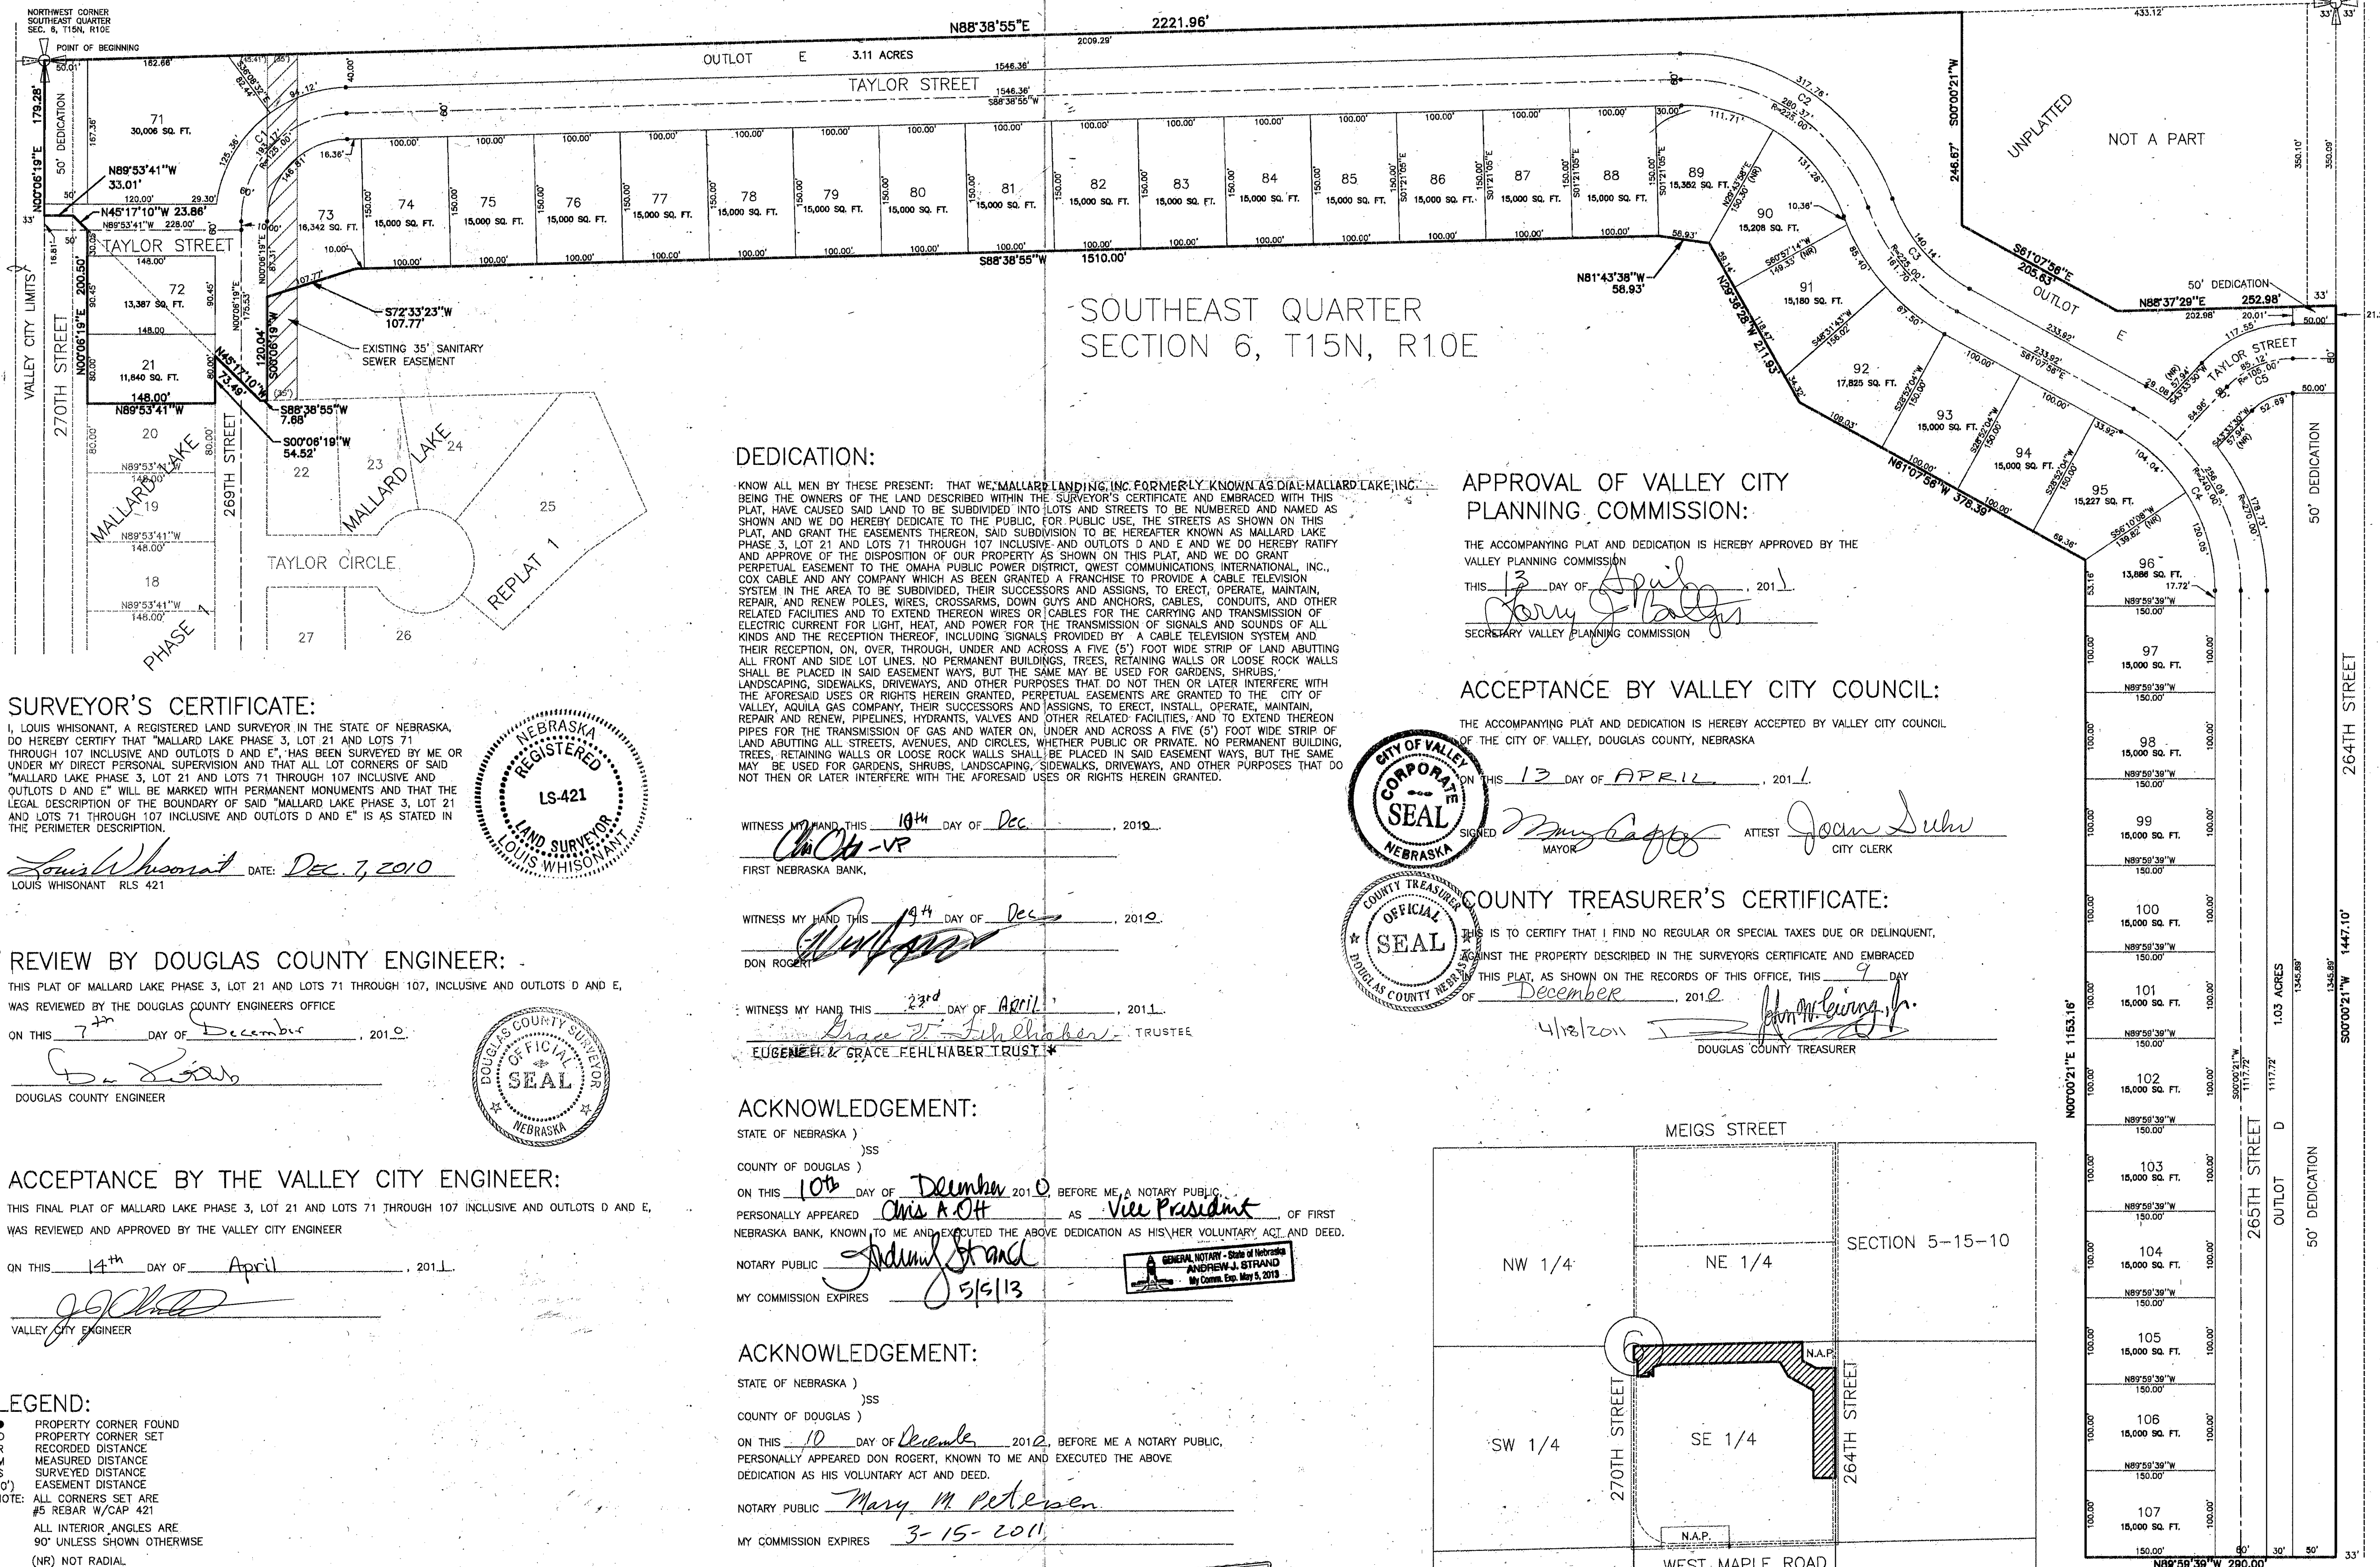 NORTHWEST CORNER
SOUTHEAST QUARTER
SEC. 6, T15N, R10E
POINT OF BEGINNING
N88°38'55"E 2221.96'
2009.29'
433.12'
33' 33'
50.01'
162.66'
(35')
OUTLOT E 3.11 ACRES
1546.36'
TAYLOR STREET
1546.36'
S88°38'55"W
N00°06'19"E 179.28'
50' DEDICATION
71
30,006 SQ. FT.
167.36'
125.36'
94.12'
40.00'
60'
N89°53'41"W
33.01'
50'
120.00'
29.30'
N45°17'10"W 23.86'
N89°53'41"W 228.00'
TAYLOR STREET
148.00'
16.81'
72
13,387 SQ. FT.
90.45'
90.45'
148.00
21
11,840 SQ. FT.
80.00'
80.00'
148.00'
N89°53'41"W
N00°06'19"E 200.50'
VALLEY CITY LIMITS
270TH STREET
269TH STREET
N00°06'19"E
175.53'
N45°17'10"W
73.49'
120.04'
S00°06'19"W
S88°38'55"W
7.68'
S00°06'19"W
54.52'
S72°33'23"W
107.77'
EXISTING 35' SANITARY
SEWER EASEMENT
16.36'
10.00'
107.77'
73
16,342 SQ. FT.
74
15,000 SQ. FT.
75
15,000 SQ. FT.
76
15,000 SQ. FT.
77
15,000 SQ. FT.
78
15,000 SQ. FT.
79
15,000 SQ. FT.
80
15,000 SQ. FT.
81
15,000 SQ. FT.
82
15,000 SQ. FT.
83
15,000 SQ. FT.
84
15,000 SQ. FT.
85
15,000 SQ. FT.
86
15,000 SQ. FT.
87
15,000 SQ. FT.
88
15,000 SQ. FT.
89
15,352 SQ. FT.
90
15,208 SQ. FT.
91
15,180 SQ. FT.
92
17,825 SQ. FT.
93
15,000 SQ. FT.
94
15,000 SQ. FT.
95
15,227 SQ. FT.
96
13,886 SQ. FT.
S88°38'55"W 1510.00'
N81°43'38"W
58.93'
N29°38'28"W 211.93'
N61°07'56"W 378.39'
317.76'
C2
280.37'
R=225.00'
111.71'
131.28'
10.36'
85.40'
87.50'
140.14'
C3
R=225.00'
161.70'
246.67' S00°00'21"W
UNPLATTED
NOT A PART
350.10'
350.09'
S61°07'56"E
205.63'
OUTLOT E
50' DEDICATION
N88°37'29"E 252.98'
202.98'
20.01'
50.00'
33'
233.92'
233.92'
S61°07'56"E
117.55'
TAYLOR STREET
85.12'
C5
29.08'
52.69'
50.00'
256.09'
R=240.00'
C4
178.73'
R=270.00'
104.04'
120.05'
17.72'
SOUTHEAST QUARTER
SECTION 6, T15N, R10E
20
19
18
MALLARD LAKE
PHASE 1
22
23
24
25
26
27
MALLARD LAKE
REPLAT 1
TAYLOR CIRCLE
SURVEYOR'S CERTIFICATE:
I, LOUIS WHISONANT, A REGISTERED LAND SURVEYOR IN THE STATE OF NEBRASKA,
DO HEREBY CERTIFY THAT "MALLARD LAKE PHASE 3, LOT 21 AND LOTS 71
THROUGH 107 INCLUSIVE AND OUTLOTS D AND E", HAS BEEN SURVEYED BY ME OR
UNDER MY DIRECT PERSONAL SUPERVISION AND THAT ALL LOT CORNERS OF SAID
"MALLARD LAKE PHASE 3, LOT 21 AND LOTS 71 THROUGH 107 INCLUSIVE AND
OUTLOTS D AND E" WILL BE MARKED WITH PERMANENT MONUMENTS AND THAT THE
LEGAL DESCRIPTION OF THE BOUNDARY OF SAID "MALLARD LAKE PHASE 3, LOT 21
AND LOTS 71 THROUGH 107 INCLUSIVE AND OUTLOTS D AND E" IS AS STATED IN
THE PERIMETER DESCRIPTION.
Louis Whisonant DATE: DEC. 7, 2010
LOUIS WHISONANT RLS 421
NEBRASKA
REGISTERED
LS-421
LAND SURVEYOR
LOUIS WHISONANT
REVIEW BY DOUGLAS COUNTY ENGINEER:
THIS PLAT OF MALLARD LAKE PHASE 3, LOT 21 AND LOTS 71 THROUGH 107, INCLUSIVE AND OUTLOTS D AND E,
WAS REVIEWED BY THE DOUGLAS COUNTY ENGINEERS OFFICE
ON THIS 7th DAY OF December, 2010.
DOUGLAS COUNTY ENGINEER
DOUGLAS COUNTY SURVEYOR
OFFICIAL
SEAL
NEBRASKA
ACCEPTANCE BY THE VALLEY CITY ENGINEER:
THIS FINAL PLAT OF MALLARD LAKE PHASE 3, LOT 21 AND LOTS 71 THROUGH 107 INCLUSIVE AND OUTLOTS D AND E,
WAS REVIEWED AND APPROVED BY THE VALLEY CITY ENGINEER
ON THIS 14th DAY OF April, 2011.
VALLEY CITY ENGINEER
LEGEND:
PROPERTY CORNER FOUND
PROPERTY CORNER SET
R RECORDED DISTANCE
M MEASURED DISTANCE
S SURVEYED DISTANCE
0') EASEMENT DISTANCE
NOTE: ALL CORNERS SET ARE
#5 REBAR W/CAP 421
ALL INTERIOR ANGLES ARE
90° UNLESS SHOWN OTHERWISE
(NR) NOT RADIAL
DEDICATION:
KNOW ALL MEN BY THESE PRESENT: THAT WE, MALLARD LANDING, INC. FORMERLY KNOWN AS DIAL-MALLARD LAKE, INC.
BEING THE OWNERS OF THE LAND DESCRIBED WITHIN THE SURVEYOR'S CERTIFICATE AND EMBRACED WITH THIS
PLAT, HAVE CAUSED SAID LAND TO BE SUBDIVIDED INTO LOTS AND STREETS TO BE NUMBERED AND NAMED AS
SHOWN AND WE DO HEREBY DEDICATE TO THE PUBLIC, FOR PUBLIC USE, THE STREETS AS SHOWN ON THIS
PLAT, AND GRANT THE EASEMENTS THEREON, SAID SUBDIVISION TO BE HEREAFTER KNOWN AS MALLARD LAKE
PHASE 3, LOT 21 AND LOTS 71 THROUGH 107 INCLUSIVE AND OUTLOTS D AND E AND WE DO HEREBY RATIFY
AND APPROVE OF THE DISPOSITION OF OUR PROPERTY AS SHOWN ON THIS PLAT, AND WE DO GRANT
PERPETUAL EASEMENT TO THE OMAHA PUBLIC POWER DISTRICT, QWEST COMMUNICATIONS INTERNATIONAL, INC.,
COX CABLE AND ANY COMPANY WHICH AS BEEN GRANTED A FRANCHISE TO PROVIDE A CABLE TELEVISION
SYSTEM IN THE AREA TO BE SUBDIVIDED, THEIR SUCCESSORS AND ASSIGNS, TO ERECT, OPERATE, MAINTAIN,
REPAIR, AND RENEW POLES, WIRES, CROSSARMS, DOWN GUYS AND ANCHORS, CABLES, CONDUITS, AND OTHER
RELATED FACILITIES AND TO EXTEND THEREON WIRES OR CABLES FOR THE CARRYING AND TRANSMISSION OF
ELECTRIC CURRENT FOR LIGHT, HEAT, AND POWER FOR THE TRANSMISSION OF SIGNALS AND SOUNDS OF ALL
KINDS AND THE RECEPTION THEREOF, INCLUDING SIGNALS PROVIDED BY A CABLE TELEVISION SYSTEM AND
THEIR RECEPTION, ON, OVER, THROUGH, UNDER AND ACROSS A FIVE (5') FOOT WIDE STRIP OF LAND ABUTTING
ALL FRONT AND SIDE LOT LINES. NO PERMANENT BUILDINGS, TREES, RETAINING WALLS OR LOOSE ROCK WALLS
SHALL BE PLACED IN SAID EASEMENT WAYS, BUT THE SAME MAY BE USED FOR GARDENS, SHRUBS,
LANDSCAPING, SIDEWALKS, DRIVEWAYS, AND OTHER PURPOSES THAT DO NOT THEN OR LATER INTERFERE WITH
THE AFORESAID USES OR RIGHTS HEREIN GRANTED, PERPETUAL EASEMENTS ARE GRANTED TO THE CITY OF
VALLEY, AQUILA GAS COMPANY, THEIR SUCCESSORS AND ASSIGNS, TO ERECT, INSTALL, OPERATE, MAINTAIN,
REPAIR AND RENEW, PIPELINES, HYDRANTS, VALVES AND OTHER RELATED FACILITIES, AND TO EXTEND THEREON
PIPES FOR THE TRANSMISSION OF GAS AND WATER ON, UNDER AND ACROSS A FIVE (5') FOOT WIDE STRIP OF
LAND ABUTING ALL STREETS, AVENUES, AND CIRCLES, WHETHER PUBLIC OR PRIVATE. NO PERMANENT BUILDING,
TREES, RETAINING WALLS OR LOOSE ROCK WALLS SHALL BE PLACED IN SAID EASEMENT WAYS, BUT THE SAME
MAY BE USED FOR GARDENS, SHRUBS, LANDSCAPING, SIDEWALKS, DRIVEWAYS, AND OTHER PURPOSES THAT DO
NOT THEN OR LATER INTERFERE WITH THE AFORESAID USES OR RIGHTS HEREIN GRANTED.
WITNESS MY HAND THIS 10th DAY OF Dec., 2010.
-VP
FIRST NEBRASKA BANK,
WITNESS MY HAND THIS DAY OF Dec, 2010.
DON ROGERT
WITNESS MY HAND THIS 23rd DAY OF April, 2011.
Grace V. Fehlhaber TRUSTEE
EUGENE H. & GRACE FEHLHABER TRUST *
ACKNOWLEDGEMENT:
STATE OF NEBRASKA )
)SS
COUNTY OF DOUGLAS )
ON THIS 10th DAY OF December 2010, BEFORE ME, A NOTARY PUBLIC,
PERSONALLY APPEARED Chris A. Ott AS Vice President, OF FIRST
NEBRASKA BANK, KNOWN TO ME AND EXECUTED THE ABOVE DEDICATION AS HIS\HER VOLUNTARY ACT AND DEED.
NOTARY PUBLIC Andrew J Strand
GENERAL NOTARY - State of Nebraska
ANDREW J. STRAND
My Comm. Exp. May 5, 2013
MY COMMISSION EXPIRES 5/5/13
ACKNOWLEDGEMENT:
STATE OF NEBRASKA )
)SS
COUNTY OF DOUGLAS )
ON THIS 10 DAY OF December 2010, BEFORE ME A NOTARY PUBLIC,
PERSONALLY APPEARED DON ROGERT, KNOWN TO ME AND EXECUTED THE ABOVE
DEDICATION AS HIS VOLUNTARY ACT AND DEED.
NOTARY PUBLIC Mary M. Petersen
MY COMMISSION EXPIRES 3-15-2011
APPROVAL OF VALLEY CITY
PLANNING COMMISSION:
THE ACCOMPANYING PLAT AND DEDICATION IS HEREBY APPROVED BY THE
VALLEY PLANNING COMMISSION
THIS 13 DAY OF April, 2011
SECRETARY VALLEY PLANNING COMMISSION
ACCEPTANCE BY VALLEY CITY COUNCIL:
THE ACCOMPANYING PLAT AND DEDICATION IS HEREBY ACCEPTED BY VALLEY CITY COUNCIL
OF THE CITY OF VALLEY, DOUGLAS COUNTY, NEBRASKA
ON THIS 13 DAY OF APRIL, 2011.
SIGNED ATTEST Joan Suhr
MAYOR CITY CLERK
CITY OF VALLEY
CORPORATE
SEAL
NEBRASKA
COUNTY TREASURER'S CERTIFICATE:
THIS IS TO CERTIFY THAT I FIND NO REGULAR OR SPECIAL TAXES DUE OR DELINQUENT,
AGAINST THE PROPERTY DESCRIBED IN THE SURVEYORS CERTIFICATE AND EMBRACED
IN THIS PLAT, AS SHOWN ON THE RECORDS OF THIS OFFICE, THIS 9 DAY
OF December, 2010
4/18/2011 John W. Ewing, Jr.
DOUGLAS COUNTY TREASURER
COUNTY TREASURER
OFFICIAL
SEAL
DOUGLAS COUNTY NEBRASKA
MEIGS STREET
NW 1/4
NE 1/4
SECTION 5-15-10
6
N.A.P.
SW 1/4
SE 1/4
270TH STREET
264TH STREET
N.A.P.
WEST MAPLE ROAD
97
15,000 SQ. FT.
98
15,000 SQ. FT.
99
15,000 SQ. FT.
100
15,000 SQ. FT.
101
15,000 SQ. FT.
102
15,000 SQ. FT.
103
15,000 SQ. FT.
104
15,000 SQ. FT.
105
15,000 SQ. FT.
106
15,000 SQ. FT.
107
15,000 SQ. FT.
N00°00'21"E 1153.16'
S00°00'21"W
1117.72'
1117.72'
265TH STREET
OUTLOT D 1.03 ACRES
50' DEDICATION
1345.89'
1345.89'
S00°00'21"W 1447.10'
264TH STREET
50' DEDICATION
150.00' 60' 30' 50' 33'
N89°59'39"W 290.00'